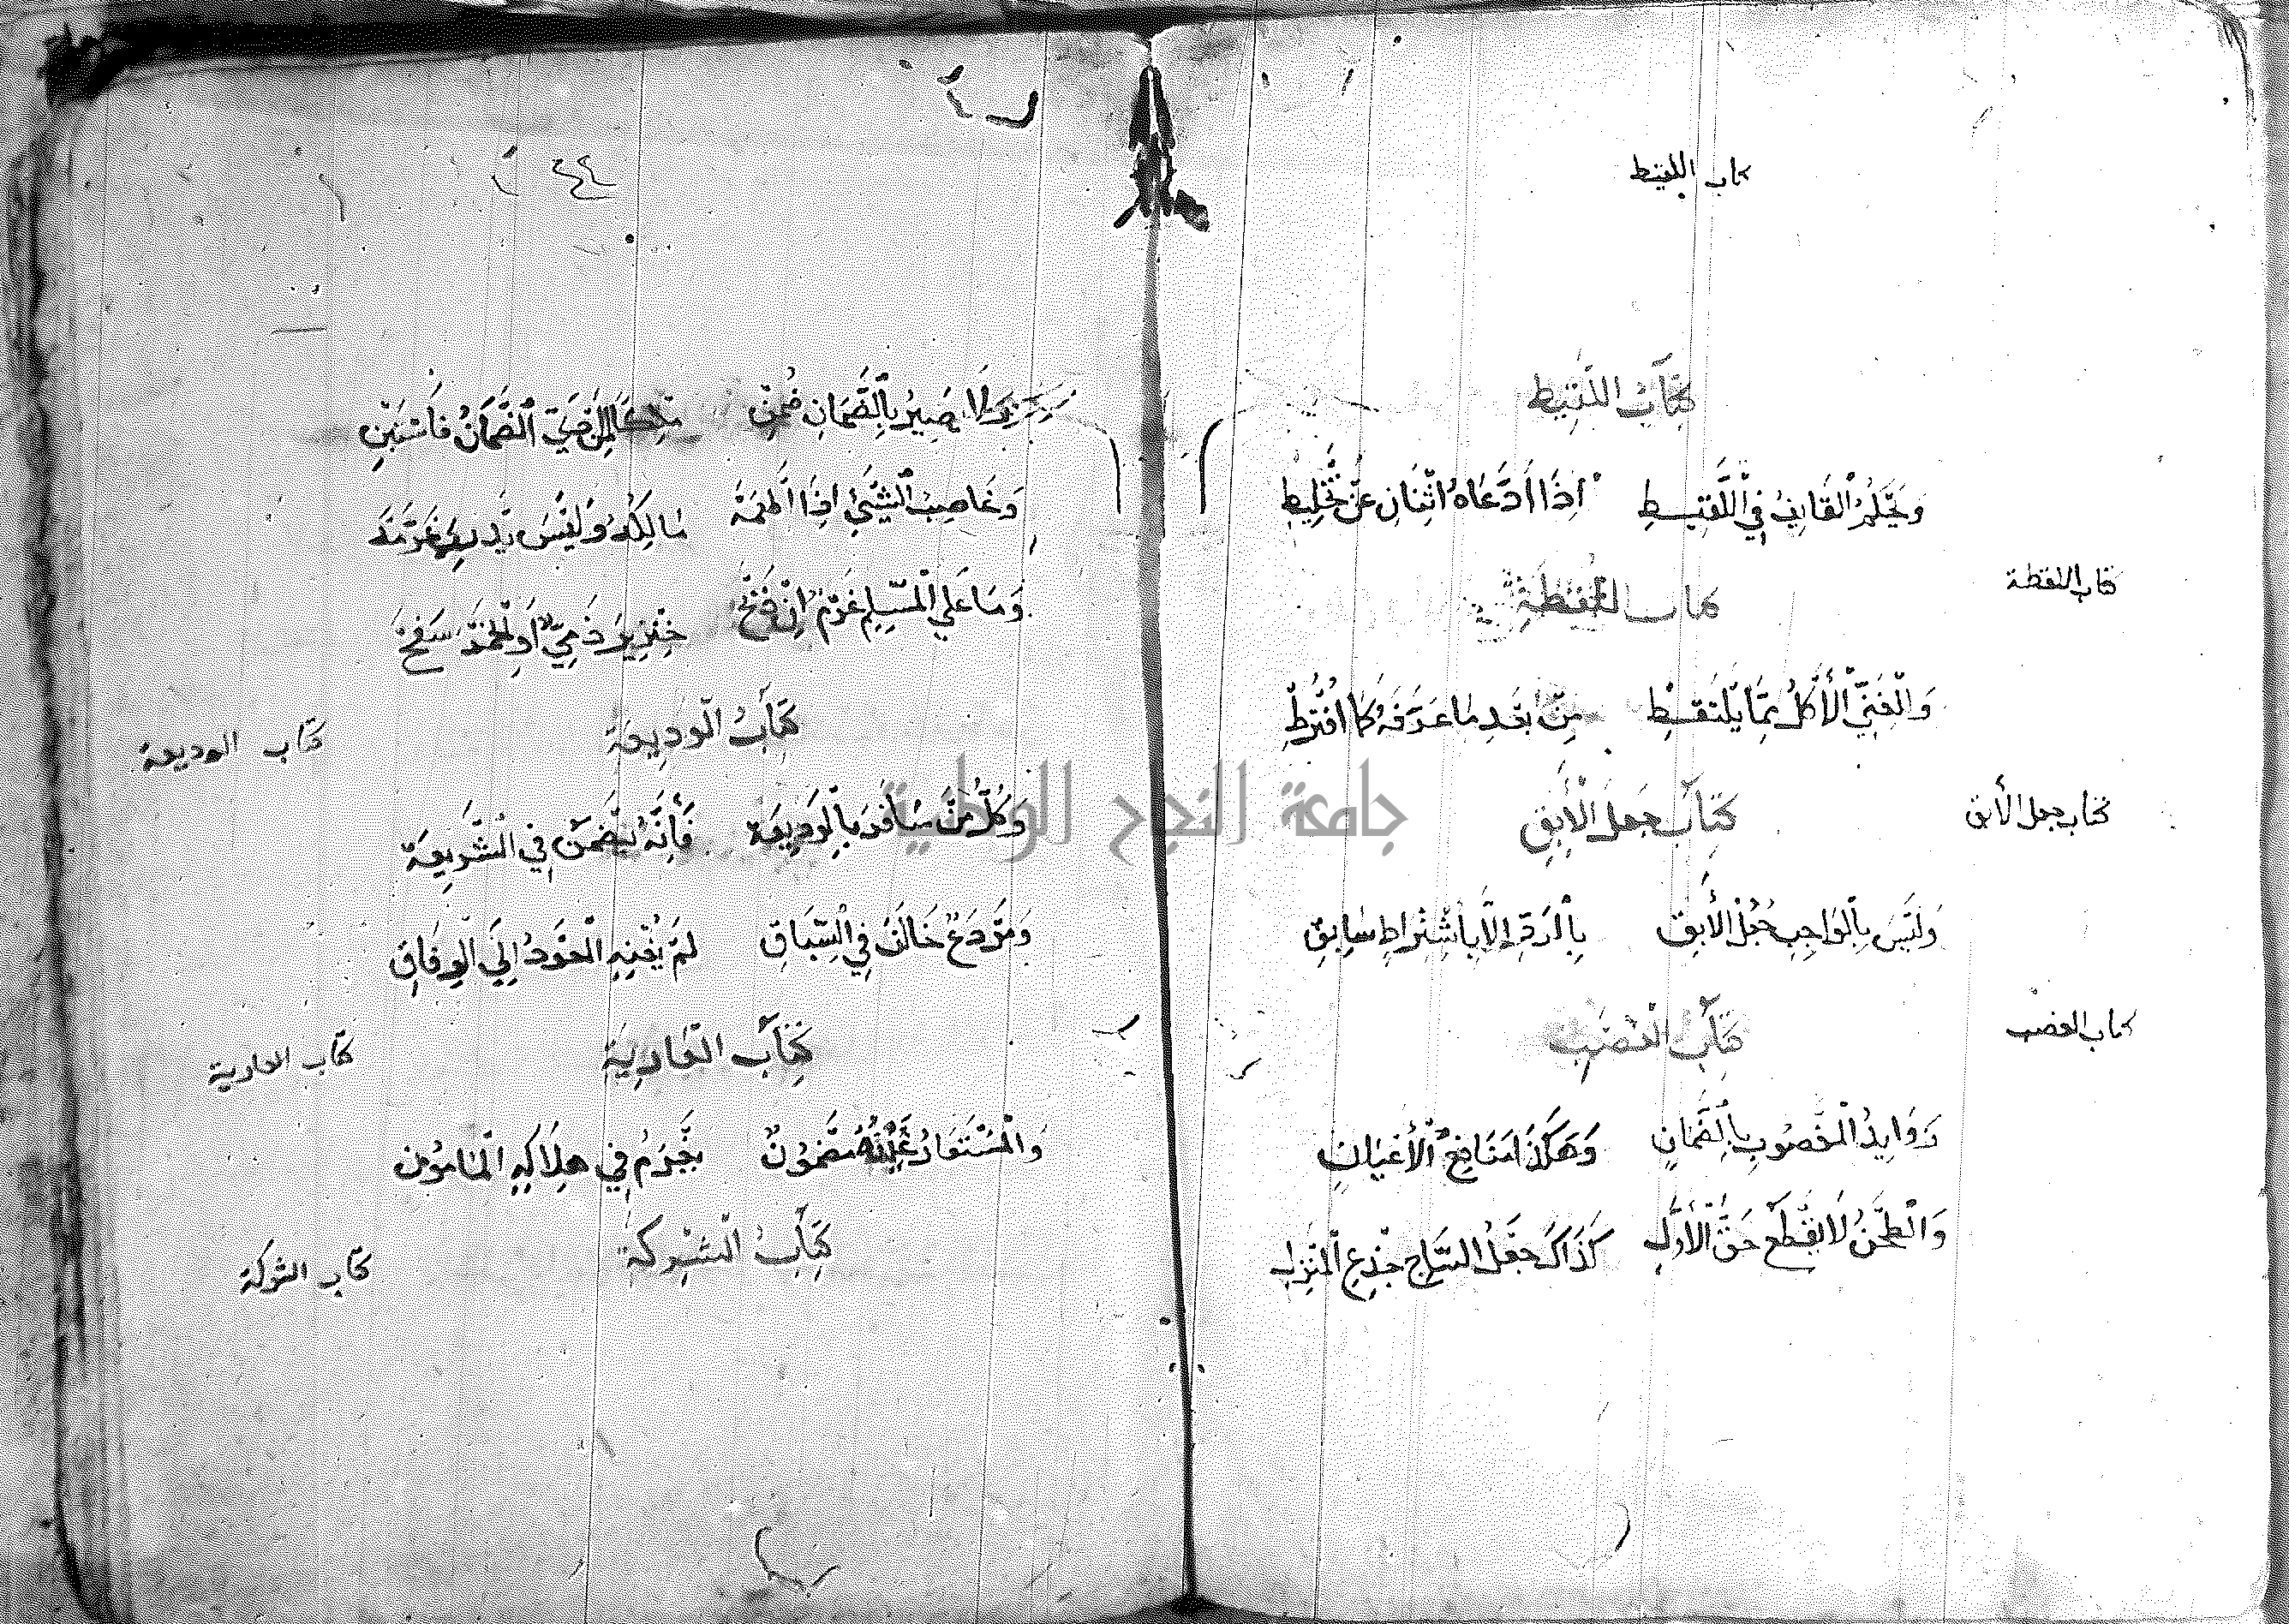 كتاب اللقيط
كتاب اللقيط
وَيُحْكَمُ الْقَايِفُ فِي اللَّقِيطِ إِذَا ادَّعَاهُ اثْنَانِ عَنْ تَخْلِيطِ
كتاب اللقطة
كتاب اللقطة
وَالْغَنِيِّ الْأَكْلُ مِمَّا يَلْتَقِطْ مِنْ بَعْدِ مَا عَرَّفَهُ كَمَا شُرِطْ
كتاب جعل الأبق
كتاب جعل الأبق
وَلَيْسَ بِالْوَاجِبِ جُعْلُ الْأبِقِ بِالرَّدِّ إِلَّا بِاشْتِرَاطٍ سَابِقِ
كتاب الغصب
كتاب الغصب
زَوَايِدُ الْمَغْصُوبِ بِالضَّمَانِ وَهَكَذَا مَنَافِعُ الْأَعْيَانِ
وَالطَّحْنُ لَا يَقْطَعُ حَقَّ الْأَوَّلِ كَذَاكَ جَعْلُ السَّاجِ جِذْعَ الْمَنْزِلِ
٤٤
يَصِيرُ بِالضَّمَانِ ضَمِنْ الضَّمَانُ فَاسْتَبِنْ
وَغَاصِبُ الشَّيْءِ إِذَا أَطْعَمَهُ مَالِكَهُ وَلَيْسَ يَدْرِي غَرِمَهُ
وَمَا عَلَى الْمُسْلِمِ غُرْمٌ إِنْ خِنْزِيرَ ذِمِّيٍّ أَوِ الْخَمْرَ سَفَحْ
كتاب الوديعة
كتاب الوديعة
وَكُلُّ مَنْ سَافَرَ بِالْوَدِيعَةِ فَإِنَّهُ يَضْمَنُ فِي الشَّرِيعَةِ
وَمُودَعٌ خَالَفَ فِي السِّبَاقِ لَمْ يُغْنِهِ الْعَوْدُ إِلَى الْوِفَاقِ
كتاب العارية
كتاب العارية
وَالْمُسْتَعَارُ عَيْنُهُ مَضْمُونٌ يَغْرَمُ فِي هَلَاكِهِ الْمَأْمُونُ
كتاب الشركة
كتاب الشركة
جامعة النجاح الوطنية